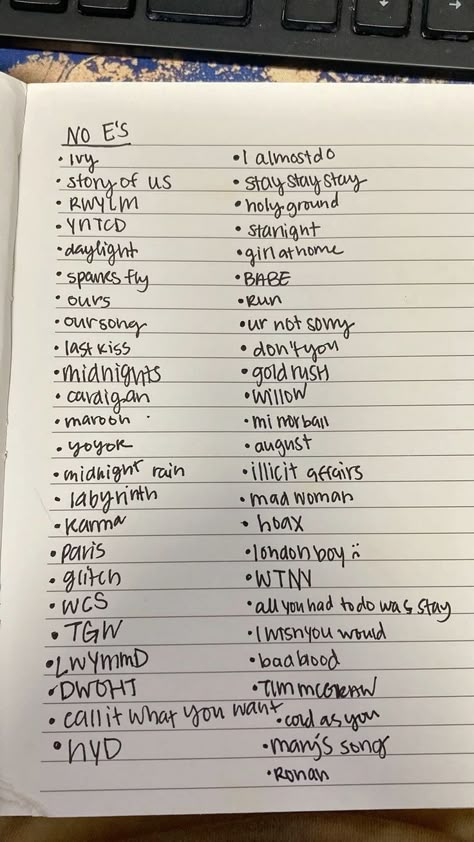 NO E'S
• Ivy
• story of us
• RWYLM
• YNTCD
• daylight
• sparks fly
• ours
• our song
• last kiss
• midnights
• cardigan
• maroon
• yoyok
• midnight rain
• labyrinth
• karma
• paris
• glitch
• WCS
• TGW
• LWYMMD
• DWOHT
• call it what you want
• hYD
• I almost do
• stay stay stay
• holy ground
• starlight
• girl at home
• BABE
• Run
• ur not sorry
• don't you
• gold rush
• willow
• mirrorball
• august
• illicit affairs
• mad woman
• hoax
• london boy
• WTNY
• all you had to do was stay
• I wish you would
• bad blood
• Tim mcGRAW
• cold as you
• mary's song
• Ronan